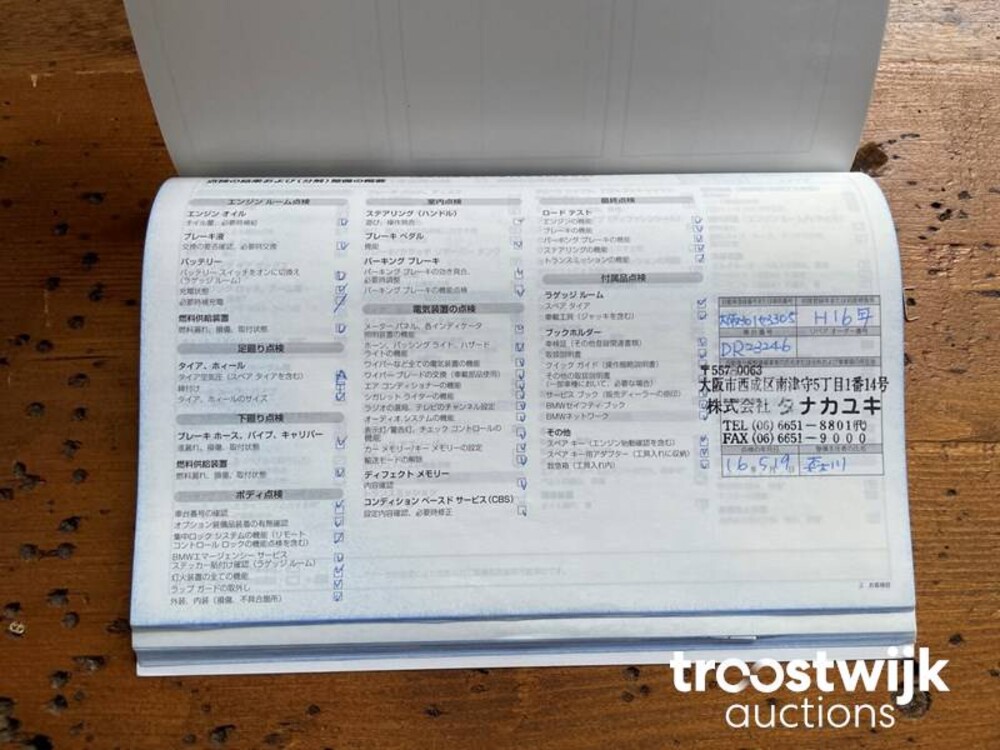 点検の結果および(分解)整備の概要
エンジン ルーム点検
エンジン オイル
オイル量、必要時補給
ブレーキ液
交換の要否確認、必要時交換
バッテリー
バッテリー スイッチをオンに切換え
(ラゲッジ ルーム)
充電状態
必要時補充電
燃料供給装置
燃料漏れ、損傷、取付状態
足廻り点検
タイア、ホィール
タイア空気圧 (スペア タイアを含む)
締付け
タイア、ホィールのサイズ
下廻り点検
ブレーキ ホース、パイプ、キャリパー
液漏れ、損傷、取付状態
燃料供給装置
燃料漏れ、損傷、取付状態
ボディ点検
車台番号の確認
オプション装備品装着の有無確認
集中ロック システムの機能 (リモート
コントロール ロックの機能点検を含む)
BMWエマージェンシー サービス
ステッカー貼付け確認 (ラゲッジ ルーム)
灯火装置の全ての機能
ラップ ガードの取外し
外装、内装 (損傷、不具合箇所)
室内点検
ステアリング (ハンドル)
遊び、操作具合
ブレーキ ペダル
機能
パーキング ブレーキ
パーキング ブレーキの効き具合、
必要時調整
パーキング ブレーキの機能点検
電気装置の点検
メーター パネル、各インディケータ
照明装置の機能
ホーン、パッシング ライト、ハザード
ライトの機能
ワイパーなど全ての電気装置の機能
ワイパー ブレードの交換 (車載部品使用)
エア コンディショナーの機能
シガレット ライターの機能
ラジオの選局、テレビのチャンネル設定
オーディオ システムの機能
表示灯/警告灯、チェック コントロールの
機能
カー メモリー/キー メモリーの設定
輸送モードの解除
ディフェクト メモリー
内容確認
コンディション ベースド サービス (CBS)
設定内容確認、必要時修正
最終点検
ロード テスト
エンジンの機能
ブレーキの機能
パーキング ブレーキの機能
ステアリングの機能
トランスミッションの機能
付属品点検
ラゲッジ ルーム
スペア タイア
車載工具 (ジャッキを含む)
ブックホルダー
車検証 (その他登録関連書類)
取扱説明書
クイック ガイド (操作簡略説明書)
その他の取扱説明書
(一部車種において、必要な場合)
サービス ブック (販売ディーラーの捺印)
BMWセイフティ ブック
BMWネットワーク
その他
スペア キー (エンジン始動確認を含む)
スペア キー用アダプター (工具入れに収納)
救急箱 (工具入れ内)
H16年
車台番号
DR23246
〒557-0063
大阪市西成区南津守5丁目1番14号
株式会社 タナカユキ
TEL (06) 6651-8801(代)
FAX (06) 6651-9000
16.5.19
troostwijk
auctions